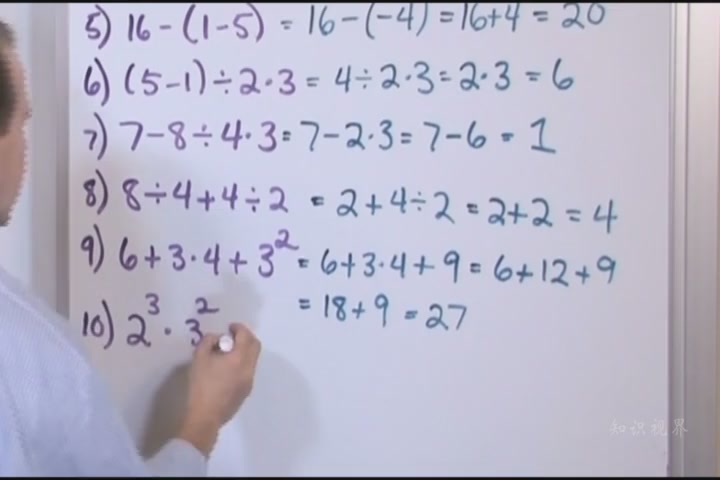 5) 16 - (1-5) = 16-(-4) = 16+4 = 20
6) (5-1) ÷ 2 · 3 = 4 ÷ 2 · 3 = 2 · 3 = 6
7) 7 - 8 ÷ 4 · 3 = 7 - 2 · 3 = 7 - 6 = 1
8) 8 ÷ 4 + 4 ÷ 2 = 2 + 4 ÷ 2 = 2 + 2 = 4
9) 6 + 3 · 4 + 3² = 6 + 3 · 4 + 9 = 6 + 12 + 9
= 18 + 9 = 27
10) 2³ · 3²
知识视界